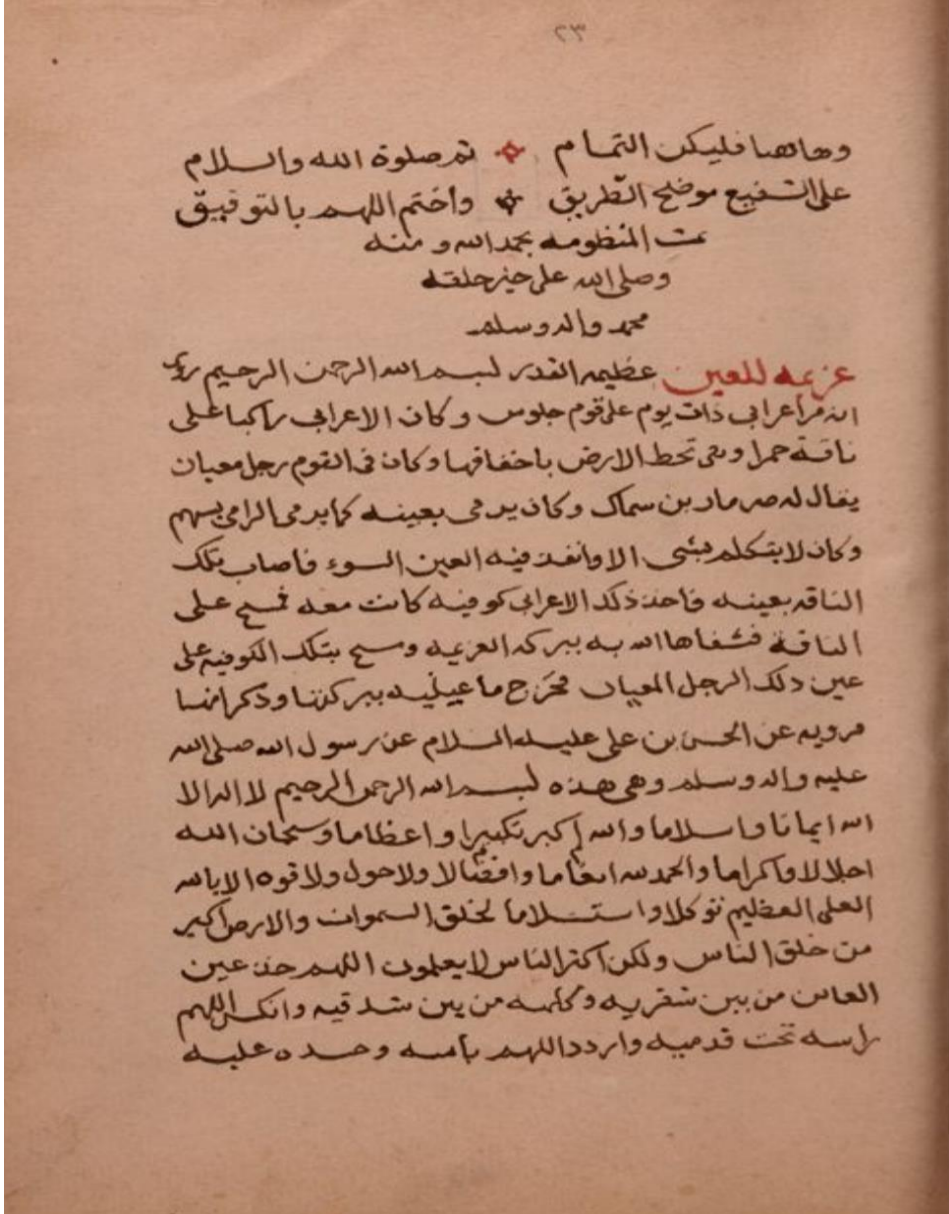 ٢٣
وهاهنا فليكن التمام تم صلوة الله والسلام
على الشفيع موضح الطريق وأختم اللهم بالتوفيق
تمت المنظومه بحمد الله ومنه
وصلى الله على خير خلقه
محمد واله وسلم
عزيمه للعين عظيمه القدر بسم الله الرحمن الرحيم روى
انه مر اعرابي ذات يوم على قوم جلوس وكان الاعرابي راكبا على
ناقة حمرا وهى تحط الارض باخفافها وكان فى القوم رجل معيان
يقال له بن سماك وكان يرمى بعينه كما يرمى الرامى بسهم
وكان لا يتكلم بشى الا وانفذ فيه العين السوء فاصاب تلك
الناقه بعينه فاخذ ذلك الاعرابى كوفيه كانت معه فمسح على
الناقة فشفاها الله به ببركه العزيمه ومسح بتلك الكوفيه على
عين ذلك الرجل المعيان فخرج ما عينيه ببركتها وذكر انها
مرويه عن الحسن بن على عليه السلام عن رسول الله صلى الله
عليه واله وسلم وهى هذه بسم الله الرحمن الرحيم لا اله الا
الله ايمانا واسلاما والله اكبر تكبيرا واعظاما وسبحان الله
اجلالا واكراما والحمد لله انعاما وافضالا ولا حول ولا قوه الا بالله
العلى العظيم توكلا واستسلاما لخلق السموات والارض اكبر
من خلق الناس ولكن اكثر الناس لا يعلمون اللهم خذ عين
العاين من بين شفريه وكلمه من بين شدقيه وانكس اللهم
راسه تحت قدميه واردد اللهم باسه وحسده عليه